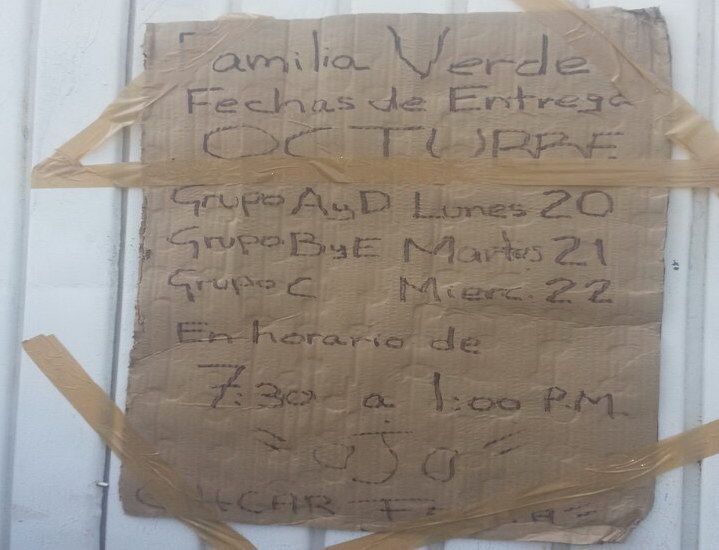 Familia Verde
Fechas de Entrega
OCTUBRE
Grupo A y D Lunes 20
Grupo B y E Martes 21
Grupo C Mierc. 22
En horario de
7:30 a 1:00 P.M.
"OJO"